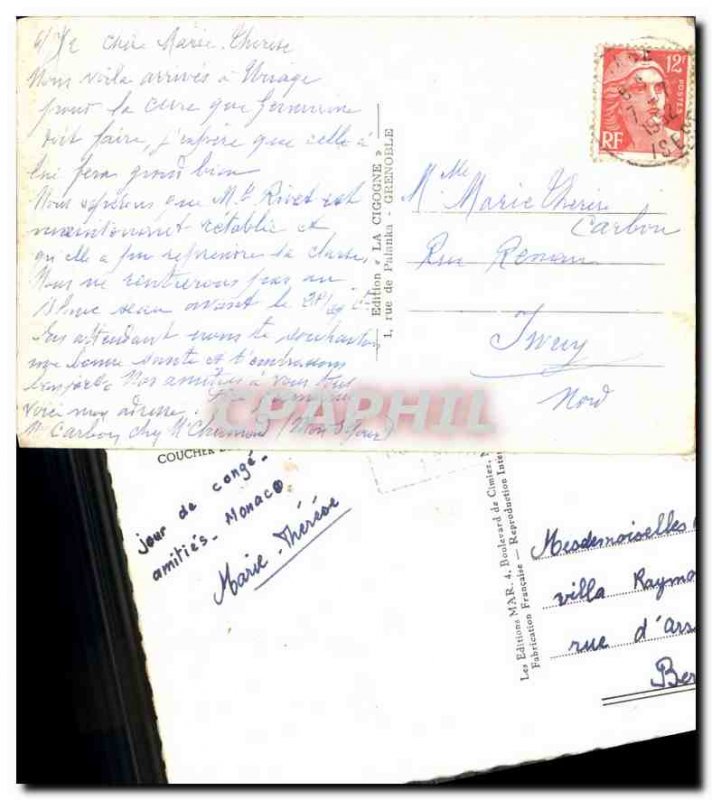 Chère Marie-Thérèse
Nous voila arrivés à Uriage
pour la cure que
doit faire, j'espère que celle-ci
lui fera grand bien
Nous espérons que Rivet est
maintenant rétablie et
qu'elle a pu reprendre la classe.
Nous ne rentrerons pas au
avant le
En attendant nous te souhaitons
une bonne santé et t'embrassons
Nos amitiés à vous tous
Voici mon adresse.
Mr Carbon chez Mr (Mon Séjour)
Edition « LA CIGOGNE »
1, rue de Palanka - GRENOBLE
12F
POSTES
RF
ISERE
Mlle Marie Thérèse
Carbon
Rue Renan
Iwuy
Nord
CPAPHIL
COUCHER
jour de congé.
amitiés. Monaco
Marie-Thérèse
Les Editions MAR, 4, Boulevard de Cimiez,
Fabrication Française — Reproduction Inter
Mesdemoiselles
villa Raymo
rue d'Ars
Ber